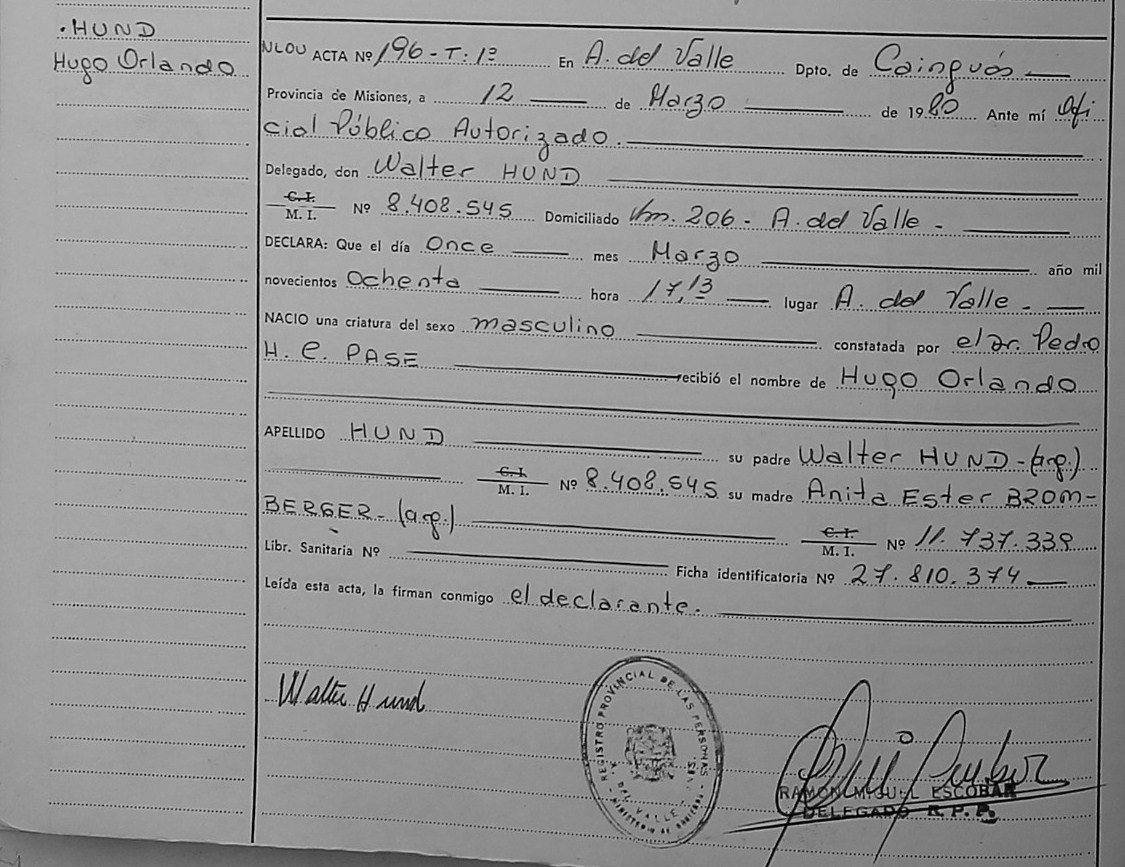 • HUND
Hugo Orlando
ACTA Nº 196 - T: 1º En A. del Valle Dpto. de Cainguás
Provincia de Misiones, a 12 de Marzo de 1980 Ante mí Ofi
cial Público Autorizado.
Delegado, don Walter HUND
C. I.
M. I. Nº 8.408.545 Domiciliado Km. 206 - A. del Valle -
DECLARA: Que el día Once mes Marzo año mil
novecientos Ochenta hora 17,13 lugar A. del Valle.
NACIO una criatura del sexo masculino constatada por el Dr. Pedro
H. C. PASE recibió el nombre de Hugo Orlando
APELLIDO HUND su padre Walter HUND - (arg.)
C. I.
M. I. Nº 8.408.545 su madre Anita Ester BROM-
BERGER - (arg.)
C. I.
M. I. Nº 11.737.339
Libr. Sanitaria Nº Ficha identificatoria Nº 27.810.374
Leída esta acta, la firman conmigo el declarante.
Walter Hund
REGISTRO PROVINCIAL DE LAS PERSONAS
RAMON MIGUEL ESCOBAR
DELEGADO R. P. P.